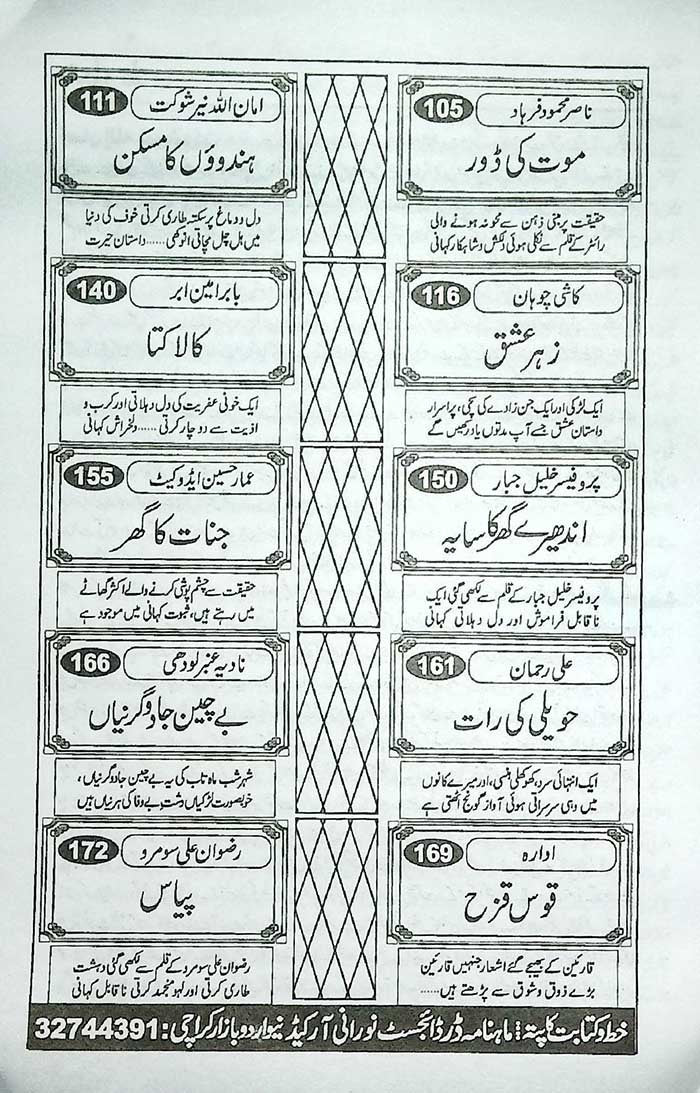 ناصر محمود فرہاد 105
موت کی ڈور
حقیقت پر مبنی ذہن سے محو نہ ہونے والی
رائٹر کے قلم سے نکلی ہوئی دلکش و شاہکار کہانی
امان اللہ نیر شوکت 111
ہندوؤں کا مسکن
دل و دماغ پر سکتہ طاری کرتی خوف کی دنیا
میں ہل چل مچاتی انوکھی ...... داستان حیرت
کاشی چوہان 116
زہر عشق
ایک لڑکی اور ایک جن زادے کی سچی، پراسرار
داستان عشق جسے آپ مدتوں یاد رکھیں گے
بابر امین ابر 140
کالا کتا
ایک خونی عفریت کی دل دہلاتی اور کرب و
اذیت سے دوچار کرتی ...... دلخراش کہانی
پروفیسر خلیل جبار 150
اندھیرے گھر کا سایہ
پروفیسر خلیل جبار کے قلم سے لکھی گئی ایک
ناقابل فراموش اور دل دہلاتی کہانی
عمار حسین ایڈوکیٹ 155
جنات کا گھر
حقیقت سے چشم پوشی کرنے والے اکثر گھاٹے
میں رہتے ہیں، ثبوت کہانی میں موجود ہے
علی رحمان 161
حویلی کی رات
ایک انتہائی سرد، کھوکھلی ہنسی، اور میرے کانوں
میں وہی سرسراتی ہوئی آواز گونج اٹھتی ہے
نادیہ عنبر لودھی 166
بے چین جادوگرنیاں
شہر شب ماہ تاب کی یہ بے چین جادوگرنیاں،
خوبصورت لڑکیاں دشت بے وفا کی ہرنیاں ہیں
ادارہ 169
قوس قزح
قارئین کے بھیجے گئے اشعار جنہیں قارئین
بڑے ذوق و شوق سے پڑھتے ہیں ......
رضوان علی سومرو 172
پیاس
رضوان علی سومرو کے قلم سے لکھی گئی دہشت
طاری کرتی اور لہو منجمد کرتی ناقابل کہانی
خط و کتابت کا پتہ: ماہنامہ ڈر ڈائجسٹ نورانی آرکیڈ نیو اردو بازار کراچی: 32744391